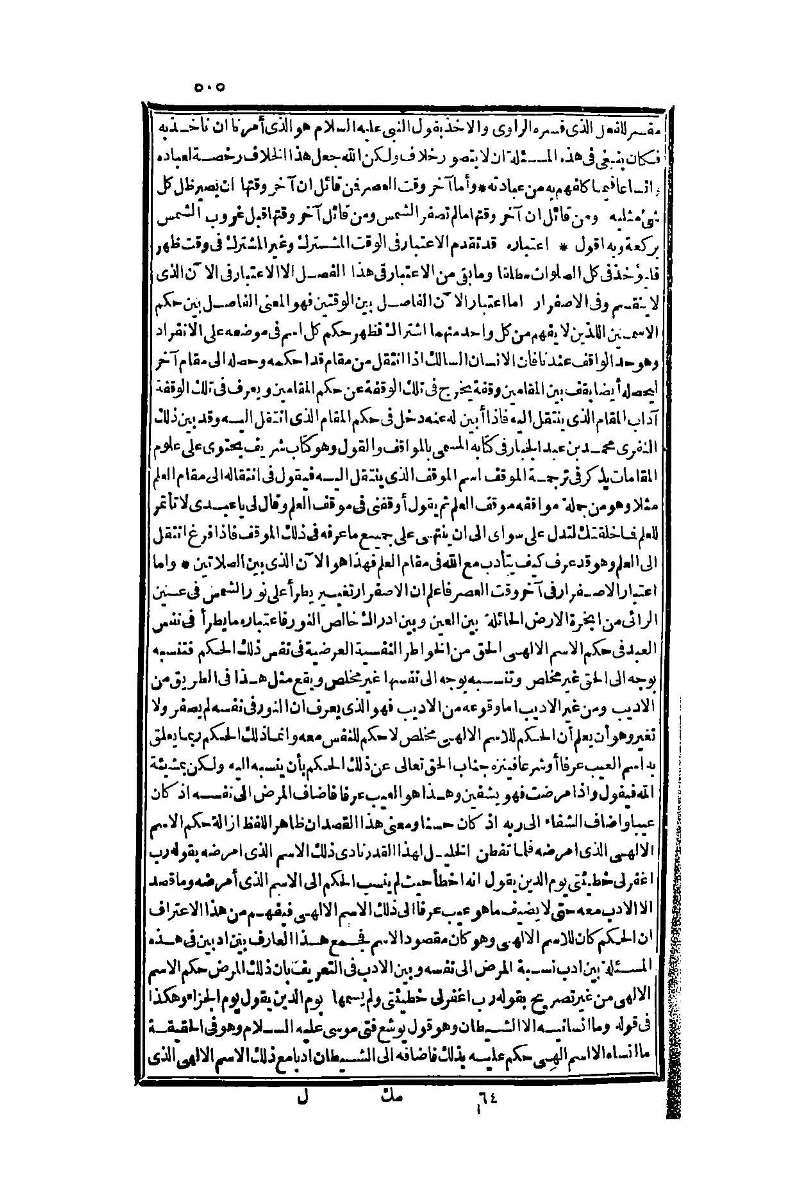 ٥٠٥
مفسر للفعل الذى فسره الراوى والاخذ بقول النبى عليه السلام هو الذى أمرنا ان نأخذ به
فكان ينبغى فى هذه المسئلة ان لا يتصور خلاف ولكن الله جعل هذا الخلاف رخصة لعباده
واتساعا فيما كلفهم به من عبادته * وأما آخر وقت العصر فن قائل ان آخر وقتها ان يصير ظل كل
شئ مثليه ومن قائل ان آخر وقتها مالم تصفر الشمس ومن قائل آخر وقتها قبل غروب الشمس
بركعة وبه اقول * اعتباره قد تقدم الاعتبار فى الوقت المشترك وغير المشترك فى وقت ظهر
فليؤخذ فى كل الصلوات مطلقا وما بقى من الاعتبار فى هذا الفصل الا الاعتبار فى الآن الذى
لا ينقسم وفى الاصفرار اما اعتبار الآن الفاصل بين الوقتين فهو المعنى الفاصل بين حكم
الاسمين اللذين لا يفهم من كل واحد منهما اشتراك فظهر حكم كل اسم فى موضعه على الانفراد
وهو حد الواقف عندنا فان الانسان السالك اذا انتقل من مقام قد احكمه وحصله الى مقام آخر
ليحصله أيضا يقف بين المقامين وقفة يخرج فى تلك الوقفة عن حكم المقامين ويعرف فى تلك الوقفة
آداب المقام الذى ينتقل اليه فاذا أبين له عنه دخل فى حكم المقام الذى انتقل اليه وقد بين ذلك
النفرى محمد بن عبد الجبار فى كتابه المسمى بالمواقف والقول وهو كتاب شريف يحتوى على علوم
المقامات يذكر فى ترجمة الموقف اسم الموقف الذى ينتقل اليه فيقول فى انتقاله الى مقام العلم
مثلا وهو من جملة مواقفه موقف العلم ثم يقول أوقفنى فى موقف العلم وقال لى يا عبدى لا تأتمر
للعلم فما خلقتك لتدل على سواى الى ان ينتهى على جميع ما عرفه فى ذلك الموقف فاذا فرغ انتقل
الى العلم وهو قد عرف كيف يتأدب مع الله فى مقام العلم فهذا هو الآن الذى بين الصلاتين * واما
اعتبار الاصفرار فى آخر وقت العصر فاعلم ان الاصفرار تغيير يطرأ على نور الشمس فى عين
الرائى من ابخرة الارض الحائلة بين العين وبين ادراك خالص النور فاعتباره ما يطرأ فى نفس
العبد فى حكم الاسم الالهى الحق من الخواطر النفسية العرضية فى نفس ذلك الحكم فتنسبه
بوجه الى الحق غير مخلص وتنسبه بوجه الى نفسها غير مخلص ويقع مثل هذا فى الطريق من
الاديب ومن غير الاديب اما وقوعه من الاديب فهو الذى يعرف ان النور فى نفسه لم يصفر ولا
تغير وهو أن يعلم أن الحكم للاسم الالهى مخلص لا حكم للنفس معه وانما ذلك الحكم ربما يعلق
به اسم العيب عرفا أو شرعا فينزه جناب الحق تعالى عن ذلك الحكم بأن ينسبه اليه ولكن بمشيئة
الله فيقول واذا مرضت فهو يشفين وهذا هو العيب عرفا فاضاف المرض الى نفسه اذ كان
عيبا واضاف الشفاء الى ربه اذ كان حسنا ومعنى هذا القصد ان ظاهر اللفظ ازالة حكم الاسم
الالهى الذى امرضه فلما تفطن الخليل لهذا القدر نادى ذلك الاسم الذى امرضه بقوله رب
اغفر لى خطيئتى يوم الدين يقول انه اخطأ حيث لم ينسب الحكم الى الاسم الذى أمرضه وما قصد
الا الادب معه حتى لا يضيف ما هو عيب عرفا الى ذلك الاسم الالهى فيفهم من هذا الاعتراف
ان الحكم كان للاسم الالهى وهو كان مقصود الاسم فجمع هذا العارف بين ادبين فى هذه
المسئلة بين ادب نسبة المرض الى نفسه وبين الادب فى التعريف بان ذلك المرض حكم الاسم
الالهى من غير تصريح بقوله رب اغفر لى خطيئتى ولم يسمها يوم الدين يقول يوم الجزاء وهكذا
فى قوله وما انسانيه الا الشيطان وهو قول يوشع فتى موسى عليه السلام وهو فى الحقيقة
ما انساه الا اسم الهى حكم عليه بذلك فاضافه الى الشيطان ادبا مع ذلك الاسم الالهى الذى
٦٤ مك ل